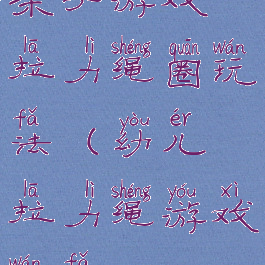 游戏
lā lì shéng quān wán
拉力绳圈玩
fǎ yòu ér
法(幼儿
lā lì shéng yóu xì
拉力绳游戏
wán fǎ